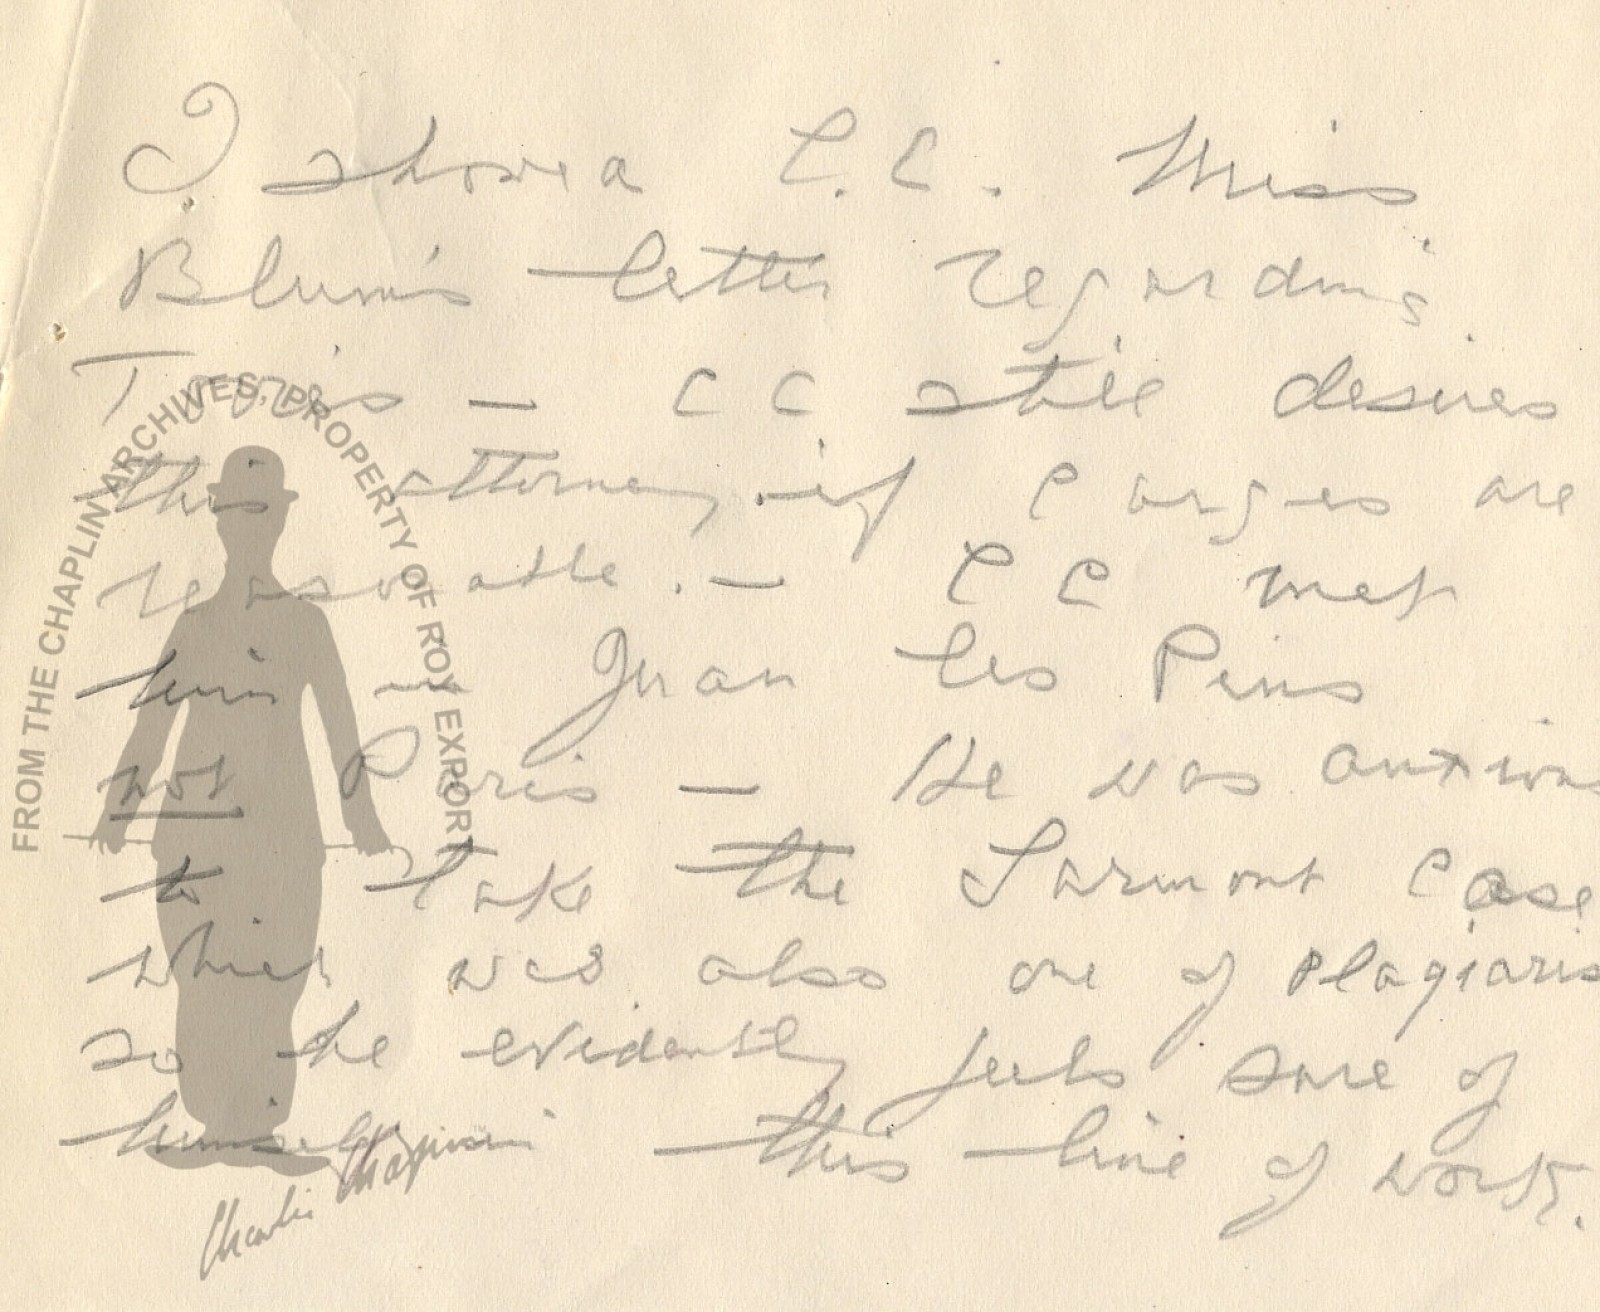 I showed C.C. Miss
Blum's letter regarding
C C still desires
this attorney if carges are
reasonable. — C C met
him in Juan les Pins
not Paris — He was anxious
to take the Sarmont case
which was also one of plagiaris
so he evidently feels sure of
himself in this line of work.
FROM THE CHAPLIN ARCHIVES, PROPERTY OF ROY EXPORT
Charlie Chaplin